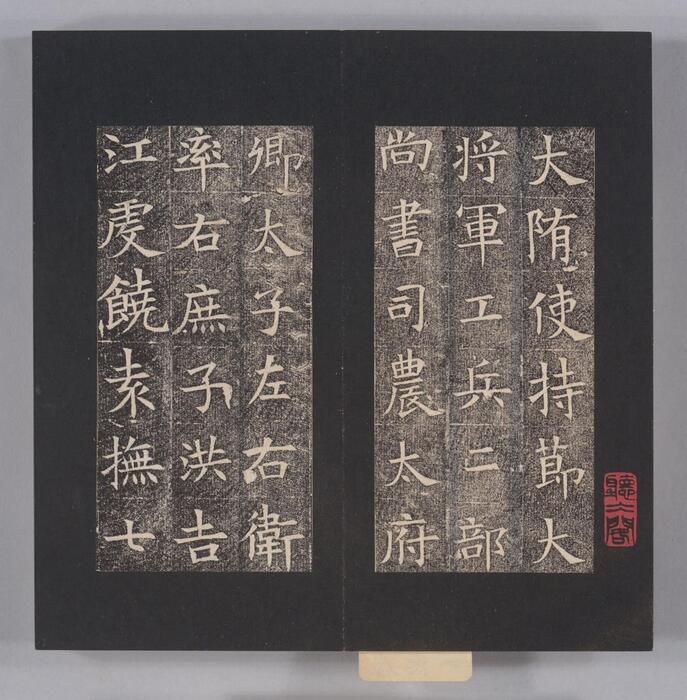 大陏使持莭大
将軍工兵二部
尚書司農太府
卿太子左右衛
率右庶子洪吉
江虔饒袁撫七
聽冰閣